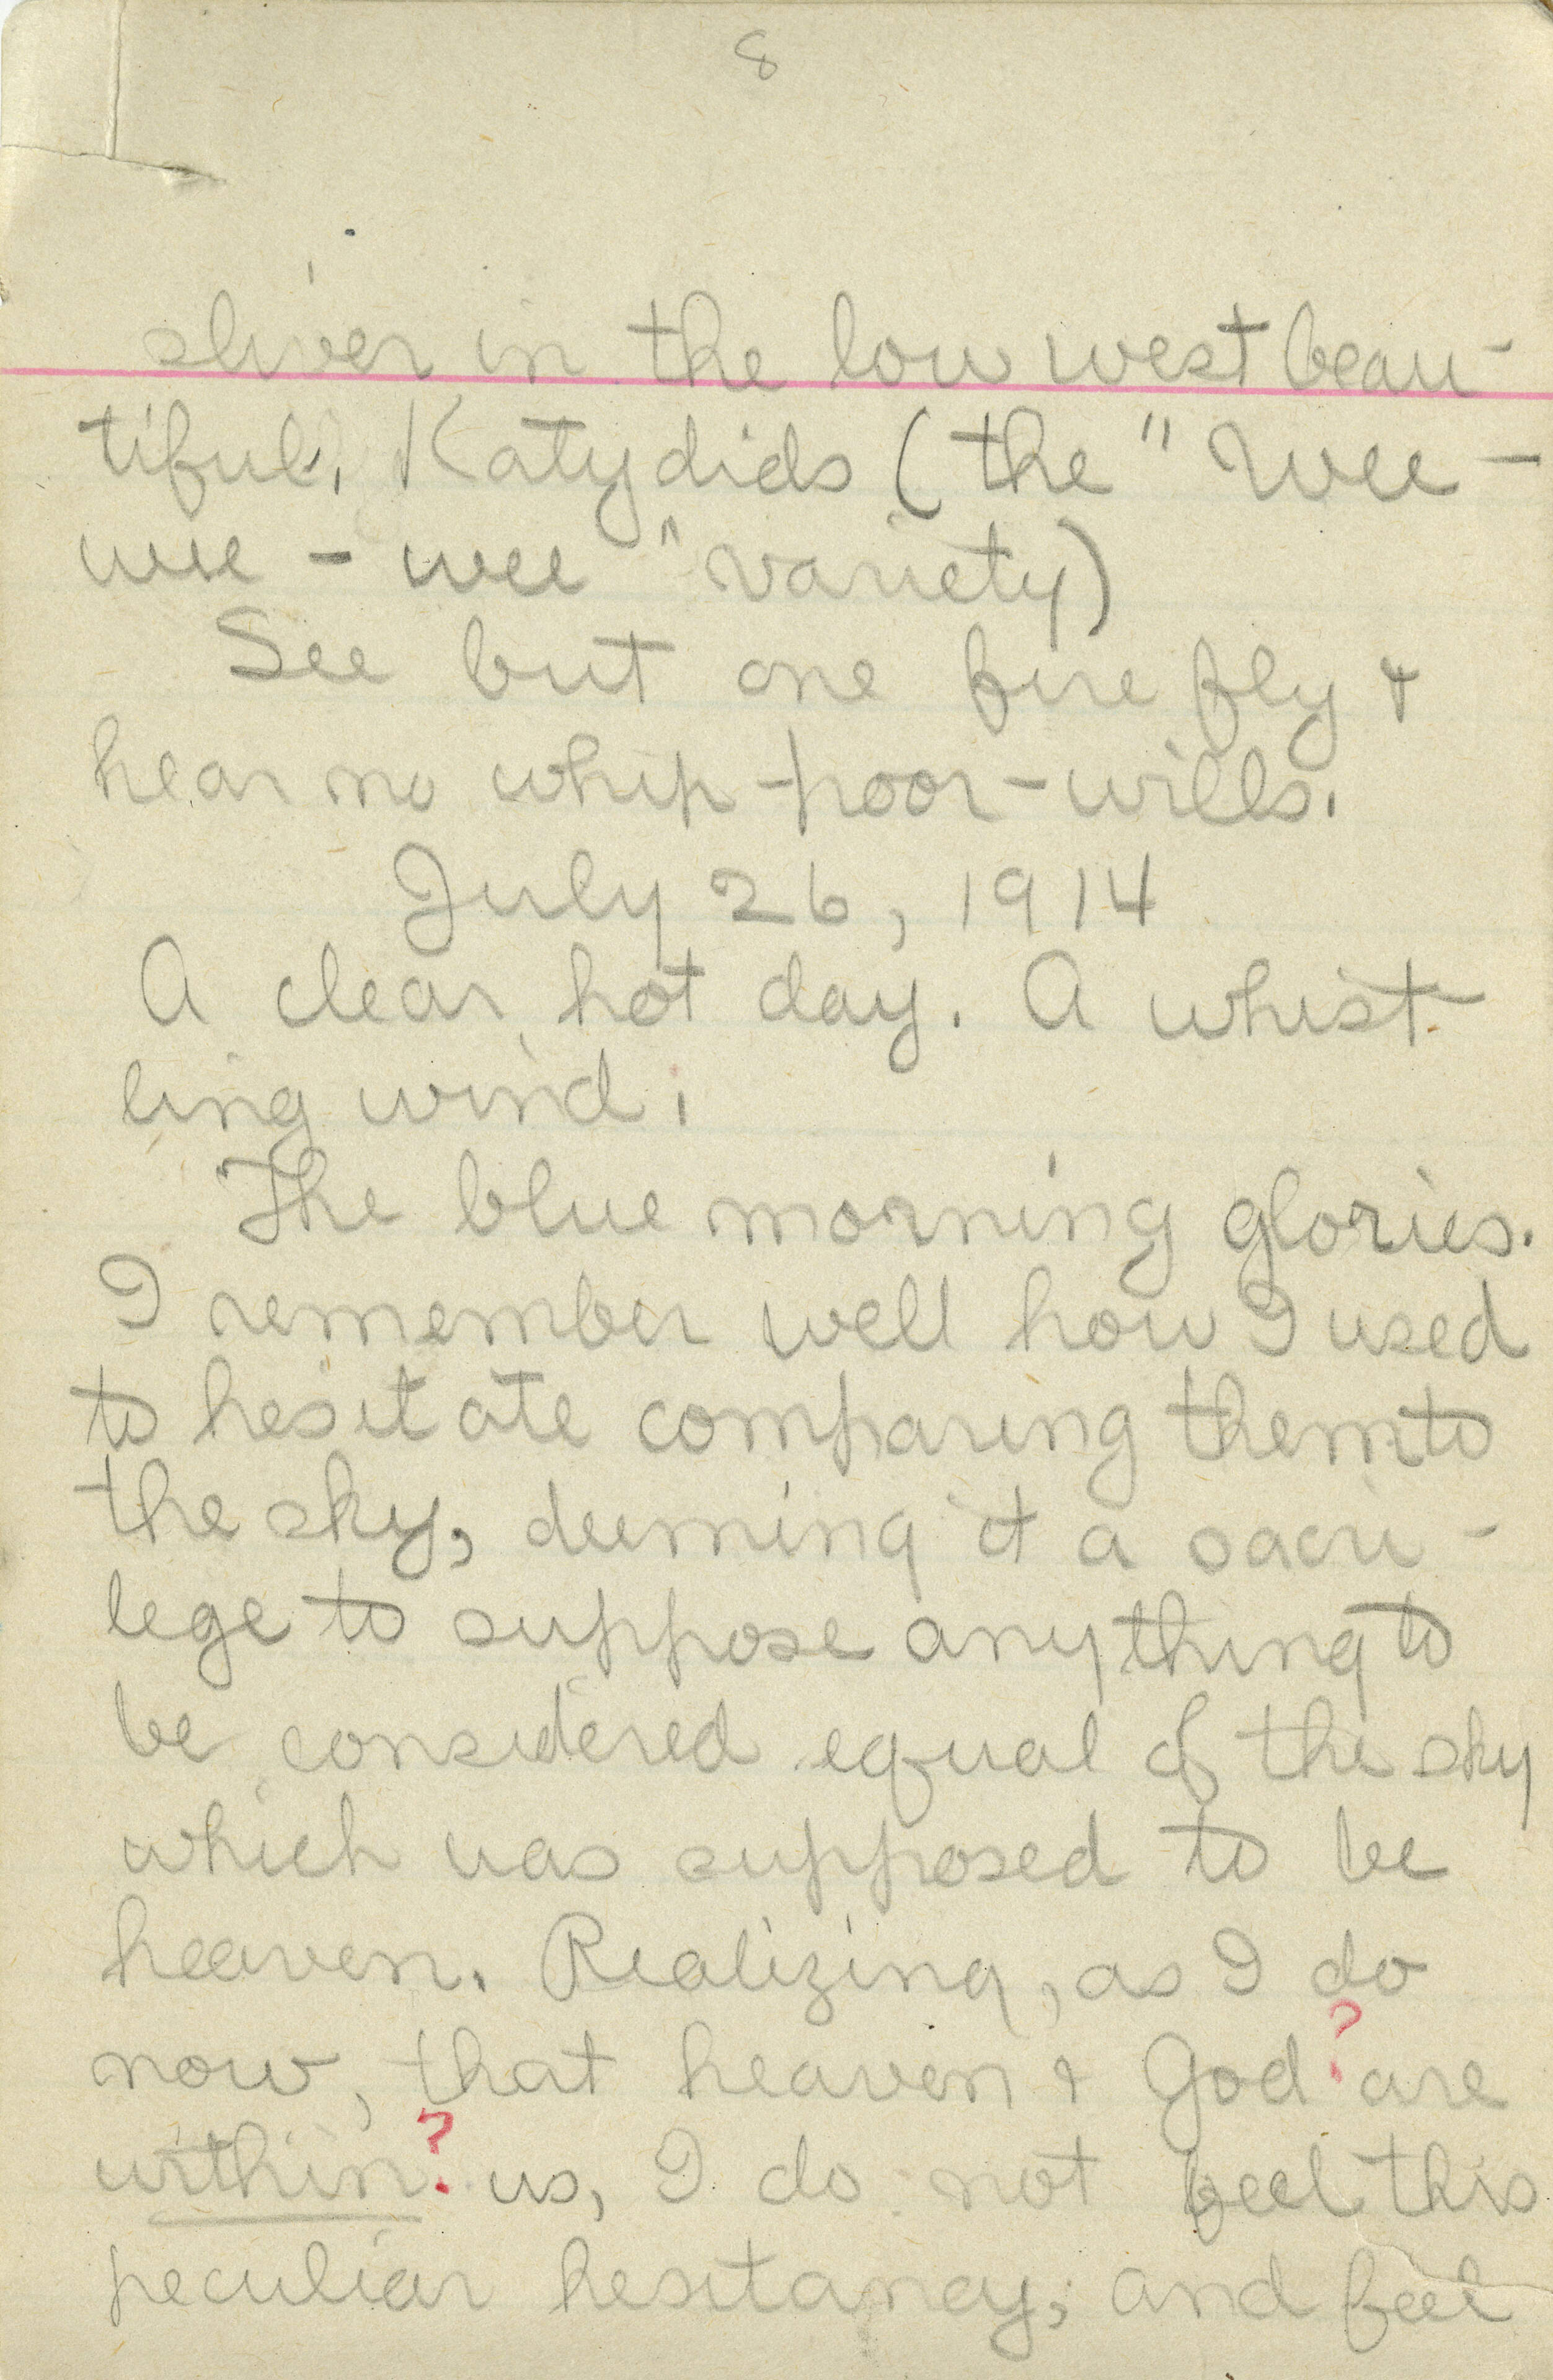 8
sliver in the low west beau-
tiful. Katydids (the "wee -
wee - wee" variety)
See but one fire fly +
hear no whip-poor-wills.
July 26, 1914
A clear hot day. A whist-
ling wind.
The blue morning glories.
I remember well how I used
to hesitate comparing them to
the sky, deeming it a sacri-
lege to suppose anything to
be considered equal of the sky
which was supposed to be
heaven. Realizing, as I do
now, that heaven + God ? are
within ? us, I do not feel this
peculiar hesitancy; and feel